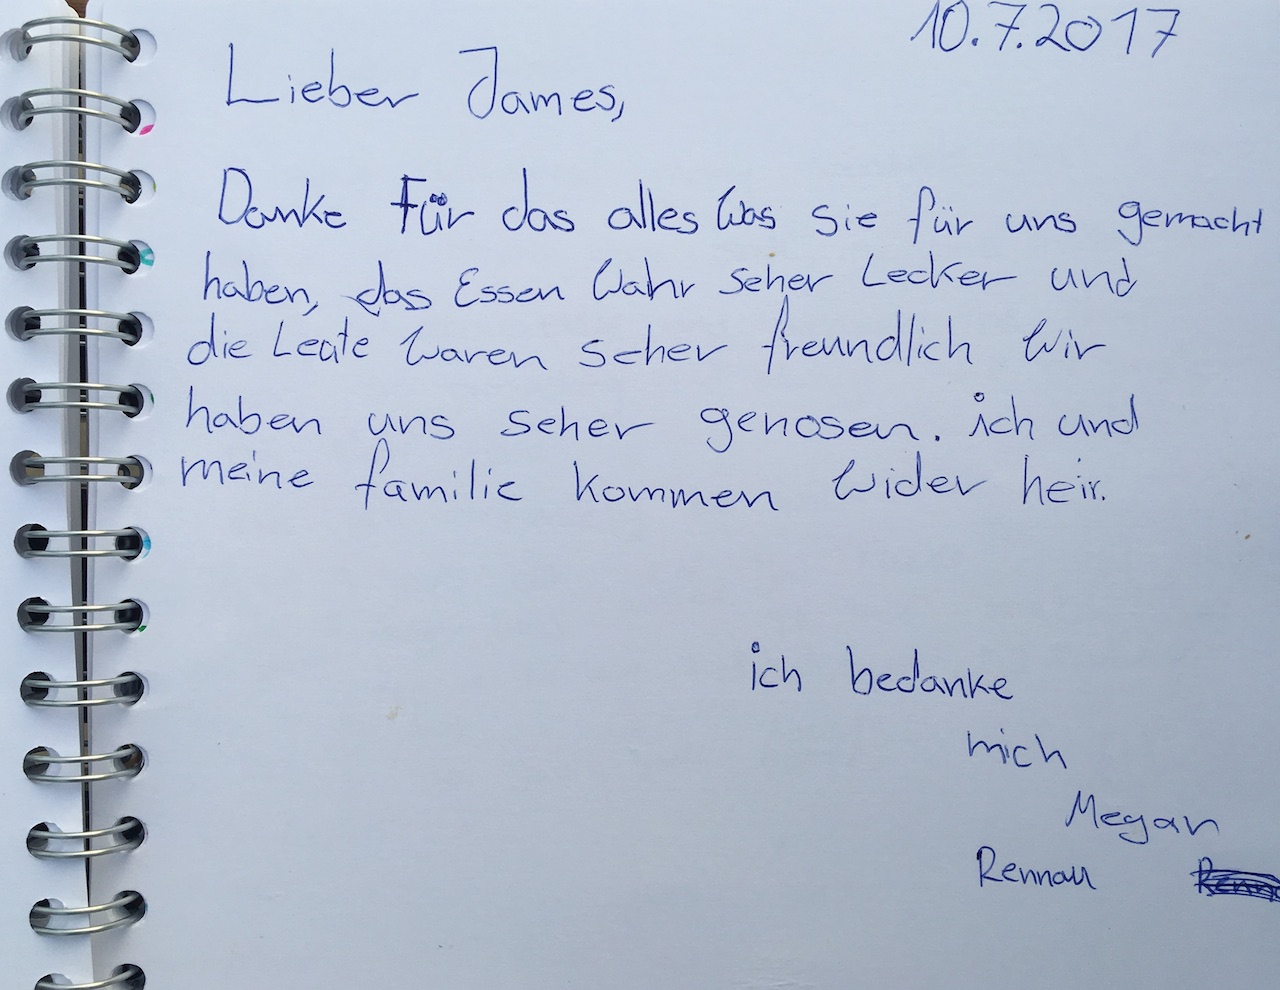 10.7.2017
Lieber James,
Danke Für das alles Was Sie für uns gemacht
haben, das Essen Wahr seher Lecker und
die Leute Waren seher freundlich Wir
haben uns seher genosen. ich und
meine familie kommen Wider heir.
ich bedanke
mich
Megan
Rennau